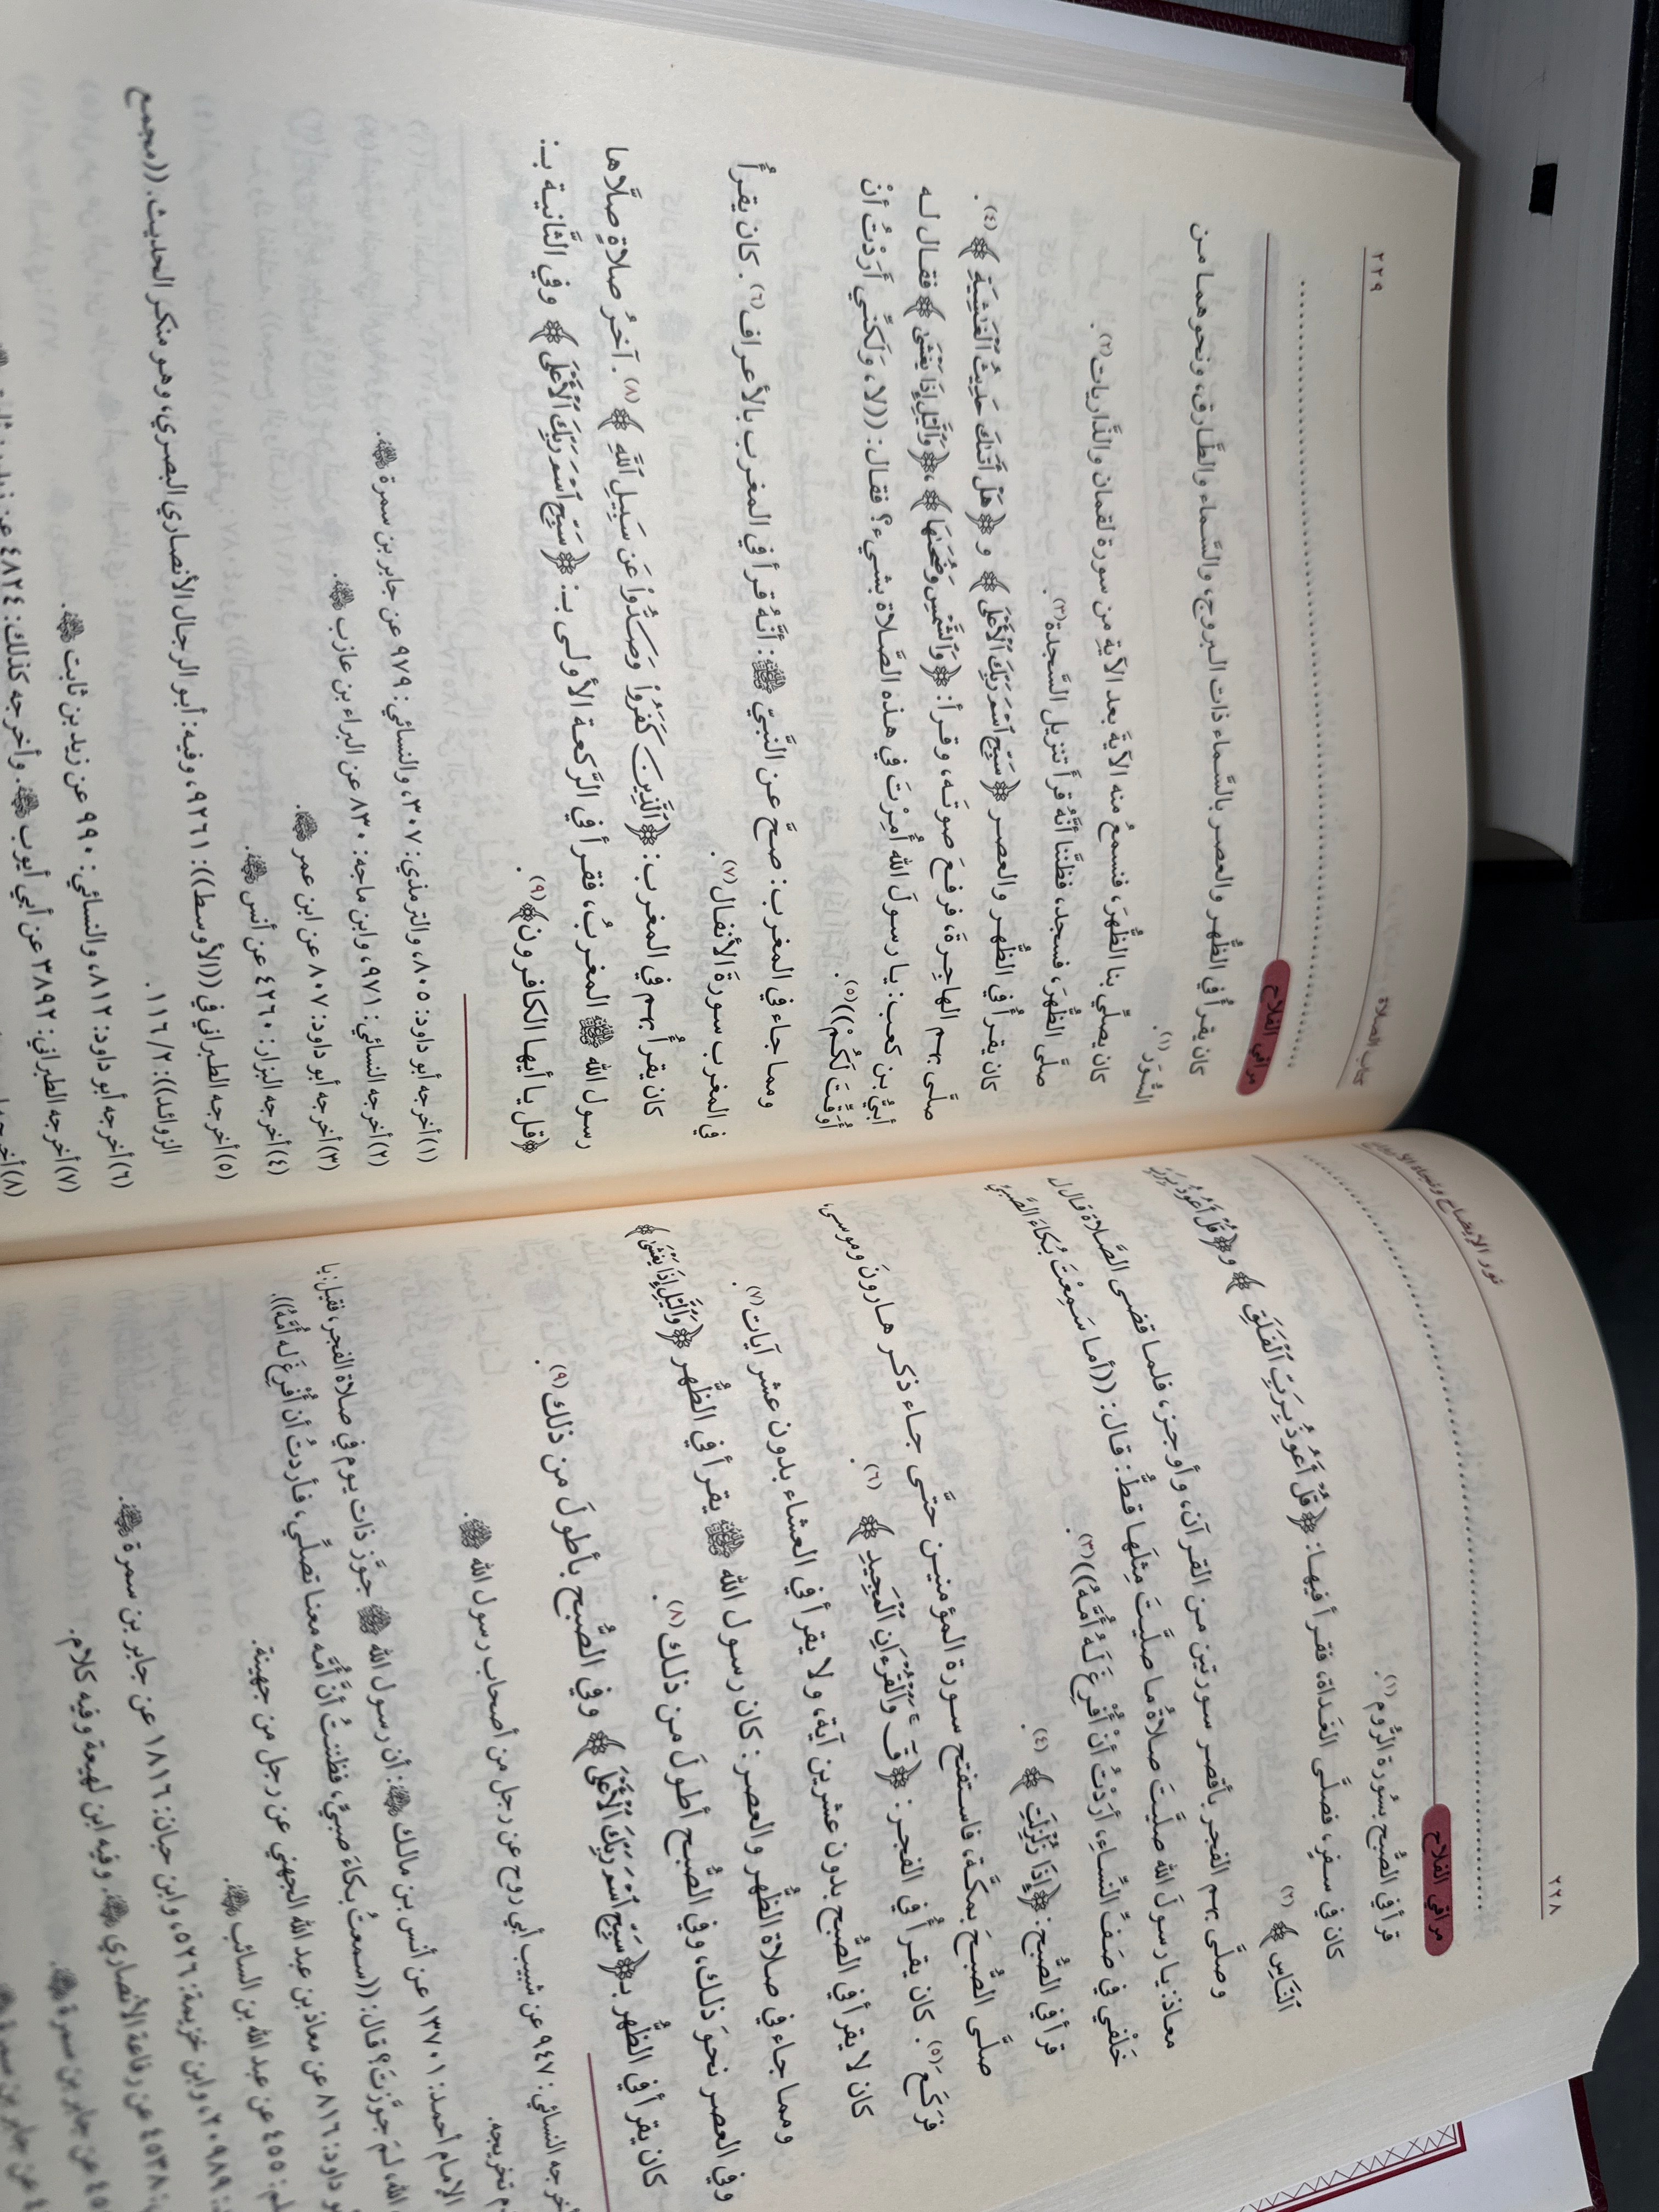 ٢٢٨
نور الإيضاح ونجاة الأرواح
مراقي الفلاح
قرأ في الصُّبح بسُورة الرُّوم(١).
كان في سفرٍ، فصلَّى الغَداة، فقرأ فيها: ﴿قُلْ أَعُوذُ بِرَبِّ ٱلْفَلَقِ﴾ و﴿قُلْ أَعُوذُ بِرَبِّ
ٱلنَّاسِ﴾(٢).
وصلَّى بهم الفجر بأقصر سورتين من القرآن، وأوجز، فلما قضى الصَّلاة قال له
معاذ: يا رسولَ الله صلَّيتَ صلاةً ما صلَّيتَ مِثلَها قطُّ: قال: ((أما سَمِعْتَ بُكاءَ الصَّبيِّ
خَلْفي في صَفِّ النِّساءِ، أرَدْتُ أنْ أُفْرِغَ لَهُ أُمَّهُ))(٣).
قرأ في الصُّبح: ﴿إِذَا زُلْزِلَتِ﴾(٤).
صلَّى الصُّبحَ بمكَّة، فاستفتح سورة المؤمنين حتَّى جاء ذكر هارونَ وموسى،
فرَكَعَ(٥). كان يقرأُ في الفجر: ﴿قٓ وَٱلْقُرْءَانِ ٱلْمَجِيدِ﴾(٦).
كان لا يقرأ في الصُّبح بدون عشرين آية، ولا يقرأ في العشاء بدون عشر آيات(٧).
ومما جاء في صلاة الظُّهر والعصر: كان رسول الله ﷺ يقرأ في الظُّهر ﴿وَٱلَّيْلِ إِذَا يَغْشَىٰ﴾
وفي العصر نحوَ ذلك، وفي الصُّبح أطولَ من ذلك(٨).
كان يقرأ في الظُّهر بـ﴿سَبِّحِ ٱسْمَ رَبِّكَ ٱلْأَعْلَى﴾ وفي الصُّبح بأطولَ من ذلك(٩).
خرجه النسائي: ٩٤٧ عن شبيب أبي روح عن رجل من أصحاب رسول الله ﷺ.
تخريجه.
الإمام أحمد: ١٣٧٠١ عن أنس بن مالك: أن رسول الله ﷺ جوَّز ذات يوم في صلاة الفجر، فقيل: يا
الله، لمَ جوَّزتَ؟ قال: ((سمعتُ بكاءَ صبيٍّ، فظننتُ أنَّ أمَّه معنا تصلِّي، فأردتُ أن أُفرِغَ له أمَّهُ)).
داود: ٨١٦ عن معاذ بن عبد الله الجهني عن رجل من جهينة.
٤٥٥ عن عبد الله بن السائب.
٢٠٩٨٩، وابن خزيمة: ٥٢٦، وابن حبان: ١٨١٦ عن جابر بن سمرة.
٤٥٣٨ عن رفاعة الأنصاري. وفيه ابن لهيعة وفيه كلام.
عن جابر بن سمرة.
٢٢٩
كتاب الصلاة
مراقي الفلاح
كان يقرأُ في الظُّهر والعصر بالسَّماء ذات البروج، والسَّماء والطَّارق، ونحوهما من
السُّوَر(١).
كان يصلِّي بنا الظُّهرَ، فنسمعُ منه الآيةَ بعد الآيةِ من سورة لقمان والذَّاريات(٢).
صلَّى الظُّهرَ، فسجد، فظنَّنا أنَّهُ قرأَ تنزيل السَّجدة(٣).
كان يقرأُ في الظُّهر والعصر ﴿سَبِّحِ ٱسْمَ رَبِّكَ ٱلْأَعْلَى﴾ و﴿هَلْ أَتَىٰكَ حَدِيثُ ٱلْغَٰشِيَةِ﴾(٤).
صلَّى بهم الهاجِرةَ، فرفعَ صوتَه، وقرأ: ﴿وَٱلشَّمْسِ وَضُحَىٰهَا﴾، ﴿وَٱلَّيْلِ إِذَا يَغْشَىٰ﴾ فقال له
أُبيُّ بن كعب: يا رسولَ الله أُمِرْتَ في هذه الصَّلاة بشيء؟ فقال: ((لا، وَلَكنِّي أَرَدْتُ أنْ
أُوَقِّتَ لَكُمْ))(٥).
ومما جاء في المغرب: صحَّ عن النَّبيِّ ﷺ: أنَّهُ قرأ في المغرب بالأعراف(٦). كان يقرأُ
في المغرب سورةَ الأنفال(٧).
كان يقرأُ بهم في المغرب: ﴿ٱلَّذِينَ كَفَرُوا۟ وَصَدُّوا۟ عَن سَبِيلِ ٱللَّهِ﴾(٨). آخرُ صلاةٍ صلَّاها
رسول الله ﷺ المغربُ، فقرأ في الرَّكعة الأولى بـ: ﴿سَبِّحِ ٱسْمَ رَبِّكَ ٱلْأَعْلَى﴾ وفي الثَّانية بـ:
﴿قل يا أيها الكافرون﴾(٩).
(١) أخرجه أبو داود: ٨٠٥، والترمذي: ٣٠٧، والنسائي: ٩٧٩ عن جابر بن سمرة.
(٢) أخرجه النسائي: ٩٧١، وابن ماجه: ٨٣٠ عن البراء بن عازب.
(٣) أخرجه أبو داود: ٨٠٧ عن ابن عمر.
(٤) أخرجه البزار: ٤٢٦٠ عن أنس.
(٥) أخرجه الطبراني في ((الأوسط)): ٩٢٦١، وفيه: أبو الرجال الأنصاري البصري، وهو منكر الحديث. ((مجمع
الزوائد)): ٢/ ١١٦.
(٦) أخرجه أبو داود: ٨١٢، والنسائي: ٩٩٠ عن زيد بن ثابت.
(٧) أخرجه الطبراني: ٣٨٩٢ عن أبي أيوب. وأخرجه كذلك: ٤٨٢٤ عن زيد بن ثابت
(٨) أخرجه